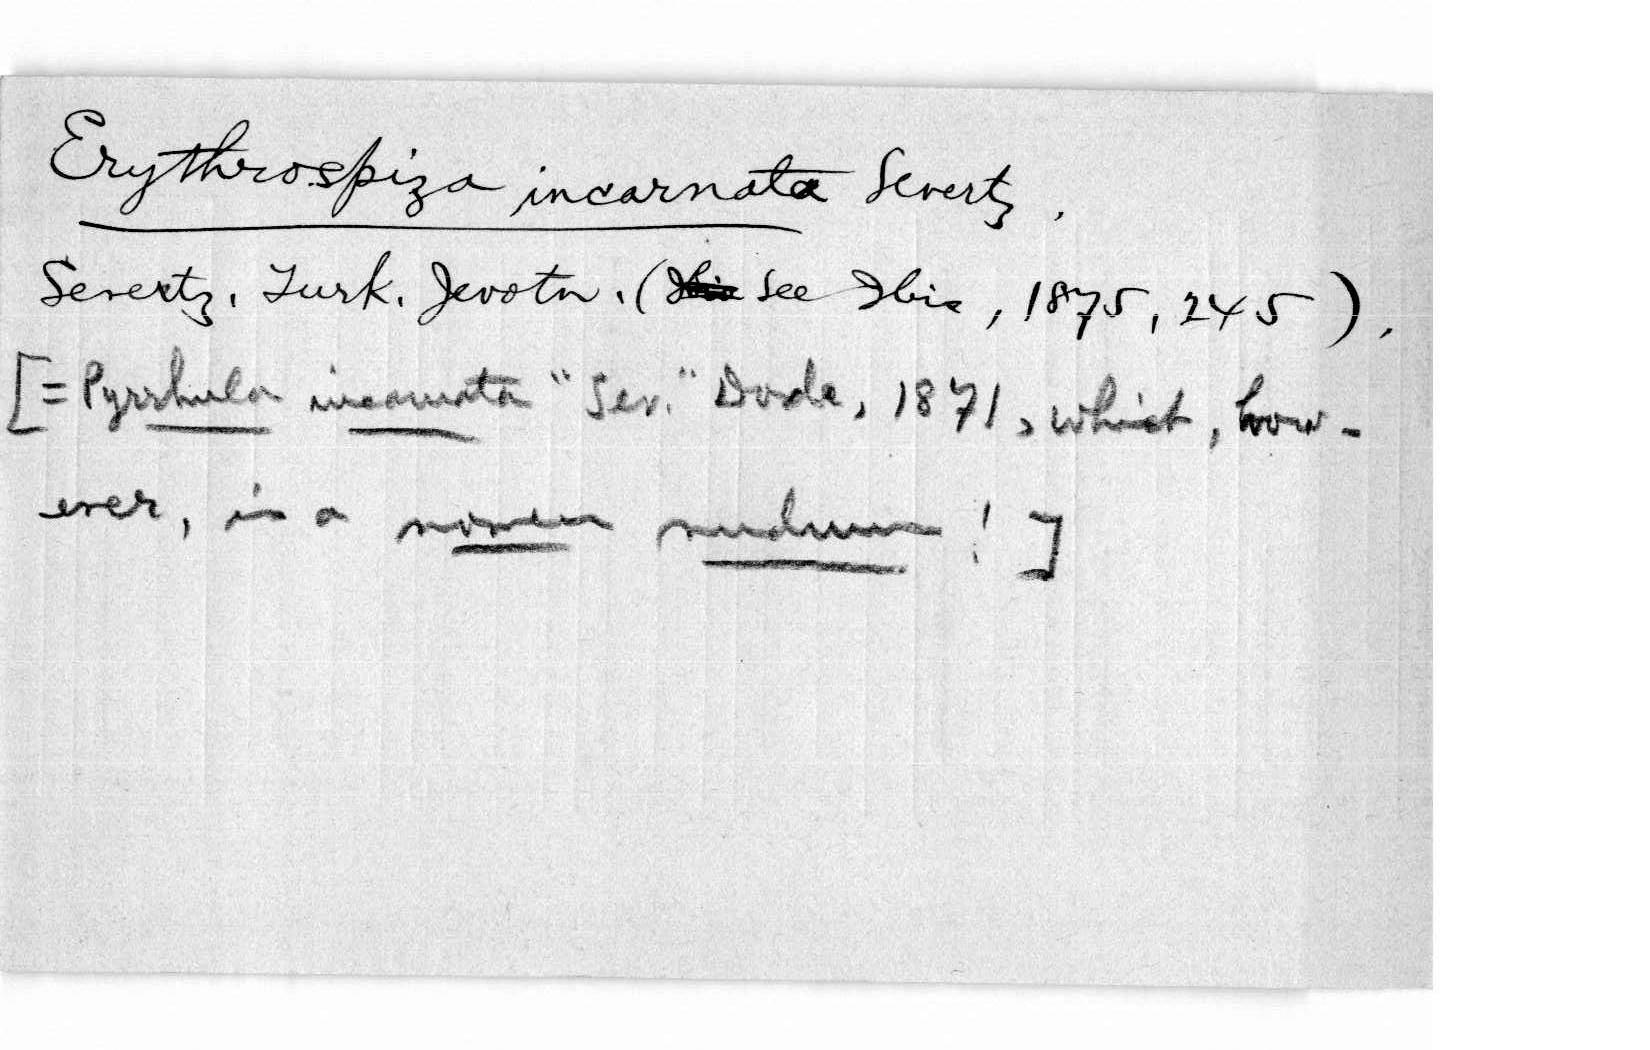 Erythrospiza incarnata Severtz.
Severtz. Turk. Jevotn. (See Ibis, 1875, 245).
[= Pyrrhula incarnata "Sev." Dode, 1871, which, how-
ever, is a nomen nudum!]